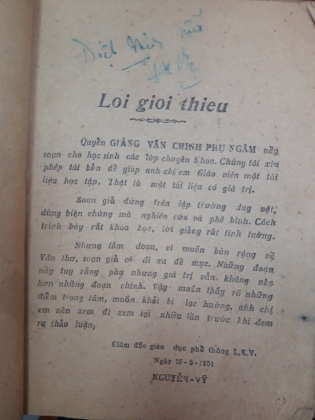 Loi gioi thieu
Quyển GIẢNG VĂN CHINH PHỤ NGÂM nầy
soạn cho học sinh các lớp chuyên khoa. Chúng tôi xin
phép tái bản để giúp anh chị em Giáo viên một tài
liệu học tập. Thật là một tài liệu có giá trị.
Soạn giả đứng trên lập trường duy vật,
dùng biện chứng mà nghiên cứu và phê bình. Cách
trình bày rất khoa học, lời giảng rất tinh tường.
Nhưng lắm đoạn, vì muốn bàn rộng về
Văn thơ, soạn giả có đi xa đề mục. Những đoạn
nầy tuy rằng phụ nhưng giá trị vẫn không nhẹ
hơn những đoạn chính. Vậy muốn thấy rõ những
điểm trọng tâm, muốn khỏi bị lạc hướng, anh chị
em nên xem đi xem lại nhiều lần trước khi đem
ra thảo luận,
Giám đốc giáo dục phổ thông L.K.V.
Ngày 15-9-1951
NGUYỄN-VỸ